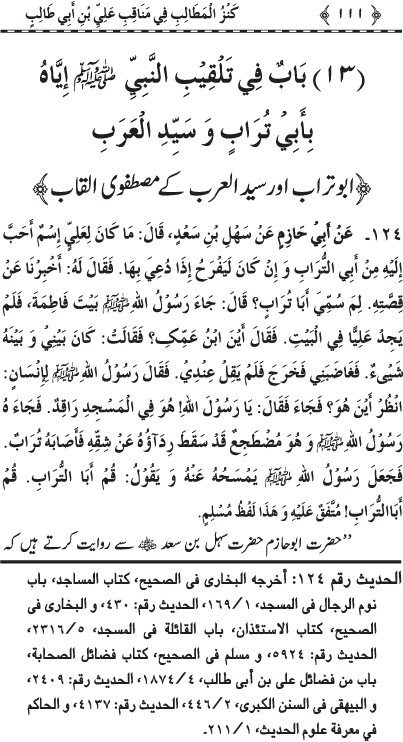 ﴿١١١﴾ كَنْزُ الْمَطَالِبِ فِي مَنَاقِبِ عَلِيِّ بْنِ أَبِي طَالِبٍ
(١٣) بَابٌ فِي تَلْقِيْبِ النَّبِيِّ ﷺ إِيَّاهُ
بِأَبِيْ تُرَابٍ وَ سَيِّدِ الْعَرَبِ
﴿ابو تراب اور سید العرب کے مصطفوی القاب﴾
١٢٤۔ عَنْ أَبِيْ حَازِمٍ عَنْ سَهْلِ بْنِ سَعْدٍ، قَالَ: مَا كَانَ لِعَلِيٍّ إِسْمٌ أَحَبَّ
إِلَيْهِ مِنْ أَبِي التُّرَابِ وَ إِنْ كَانَ لَيَفْرَحُ إِذَا دُعِيَ بِهَا. فَقَالَ لَهُ: أَخْبِرْنَا عَنْ
قِصَّتِهِ. لِمَ سُمِّيَ أَبَا تُرَابٍ؟ قَالَ: جَاءَ رَسُوْلُ اللهِ ﷺ بَيْتَ فَاطِمَةَ، فَلَمْ
يَجِدْ عَلِيًّا فِي الْبَيْتِ. فَقَالَ أَيْنَ ابْنُ عَمِّكِ؟ فَقَالَتْ: كَانَ بَيْنِيْ وَ بَيْنَهُ
شَيْءٌ. فَغَاضَبَنِي فَخَرَجَ فَلَمْ يَقِلْ عِنْدِيْ. فَقَالَ رَسُوْلُ اللهِ ﷺ لِإِنْسَانٍ:
انْظُرْ أَيْنَ هُوَ؟ فَجَاءَ فَقَالَ: يَا رَسُوْلَ اللهِ! هُوَ فِي الْمَسْجِدِ رَاقِدٌ. فَجَاءَ هُ
رَسُوْلُ اللهِ ﷺ وَ هُوَ مُضْطَجِعٌ قَدْ سَقَطَ رِدَاؤُهُ عَنْ شِقِّهِ فَأَصَابَهُ تُرَابٌ.
فَجَعَلَ رَسُوْلُ اللهِ ﷺ يَمْسَحُهُ عَنْهُ وَ يَقُوْلُ: قُمْ أَبَا التُّرَابِ. قُمْ
أَبَا التُّرَابِ! مُتَّفَقٌ عَلَيْهِ وَ هَذَا لَفْظُ مُسْلِمٍ.
’’حضرت ابو حازم حضرت سہل بن سعد ؓ سے روایت کرتے ہیں کہ
الحديث رقم ١٢٤: أخرجه البخاري في الصحيح، كتاب المساجد، باب
نوم الرجال في المسجد، ١/١٦٩، الحديث رقم: ٤٣٠، و البخاري في
الصحيح، كتاب الاستئذان، باب القائلة في المسجد، ٥/٢٣١٦،
الحديث رقم: ٥٩٢٤، و مسلم في الصحيح، كتاب فضائل الصحابة،
باب من فضائل علي بن أبي طالب، ٤/١٨٧٤، الحديث رقم: ٢٤٠٩،
و البيهقي في السنن الكبرى، ٢/٤٤٦، الحديث رقم: ٤١٣٧، و الحاكم
في معرفة علوم الحديث، ١/٢١١.